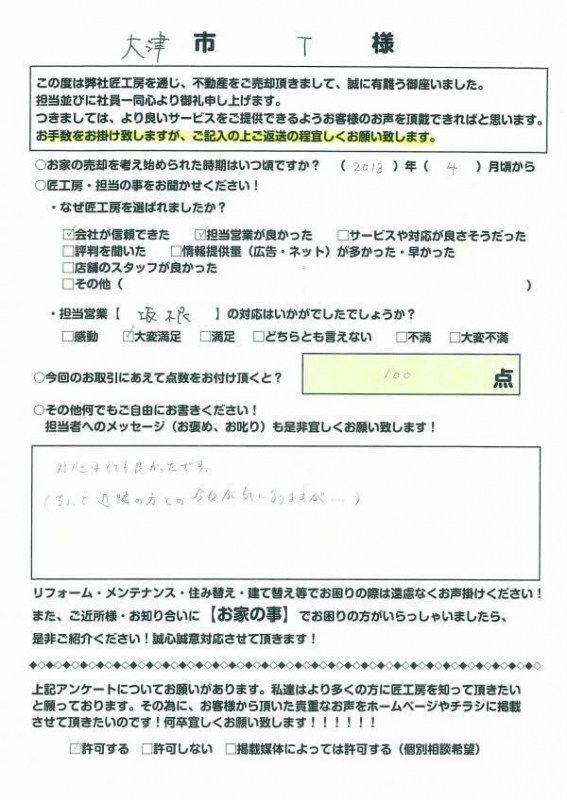 大津 市 T 様
この度は弊社匠工房を通じ、不動産をご売却頂きまして、誠に有難う御座いました。
担当並びに社員一同心より御礼申し上げます。
つきましては、より良いサービスをご提供できるようお客様のお声を頂戴できればと思います。
お手数をお掛け致しますが、ご記入の上ご返送の程宜しくお願い致します。
○お家の売却を考え始められた時期はいつ頃ですか？ （ 2013 ）年（ 4 ）月頃から
○匠工房・担当の事をお聞かせください！
・なぜ匠工房を選ばれましたか？
☑会社が信頼できた ☑担当営業が良かった □サービスや対応が良さそうだった
□評判を聞いた □情報提供量（広告・ネット）が多かった・早かった
□店舗のスタッフが良かった
□その他（ ）
・担当営業【 坂根 】の対応はいかがでしたでしょうか？
□感動 ☑大変満足 □満足 □どちらとも言えない □不満 □大変不満
○今回のお取引にあえて点数をお付け頂くと？ 100 点
○その他何でもご自由にお書きください！
担当者へのメッセージ（お褒め、お叱り）も是非宜しくお願い致します！
対応はとても良かったです。
（ちょっと近隣の方との今後が気になりますが…）
リフォーム・メンテナンス・住み替え・建て替え等でお困りの際は遠慮なくお声掛けください！
また、ご近所様・お知り合いに【お家の事】でお困りの方がいらっしゃいましたら、
是非ご紹介ください！誠心誠意対応させて頂きます！
上記アンケートについてお願いがあります。私達はより多くの方に匠工房を知って頂きたい
と願っております。その為に、お客様から頂いた貴重なお声をホームページやチラシに掲載
させて頂きたいのです！何卒宜しくお願い致します！！！！！！
☑許可する □許可しない □掲載媒体によっては許可する（個別相談希望）